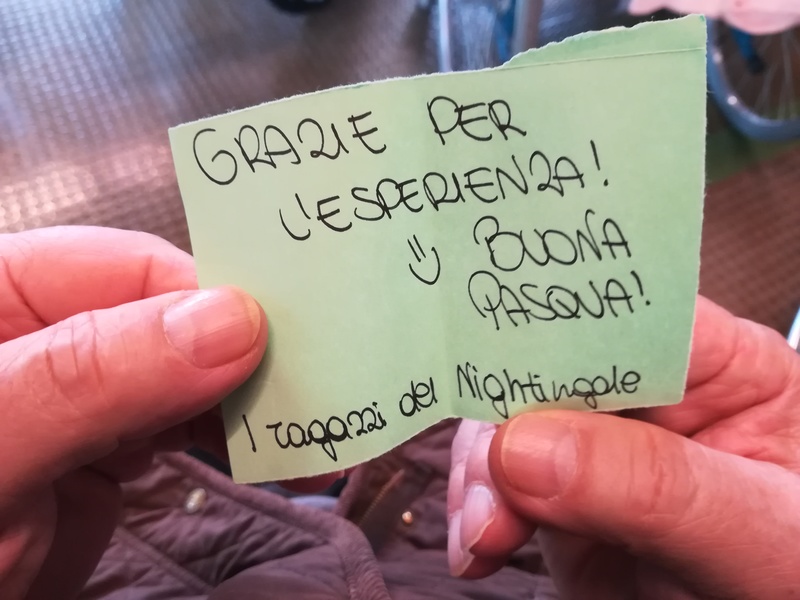 GRAZIE PER
L'ESPERIENZA!
BUONA
PASQUA!
I ragazzi del Nightingale